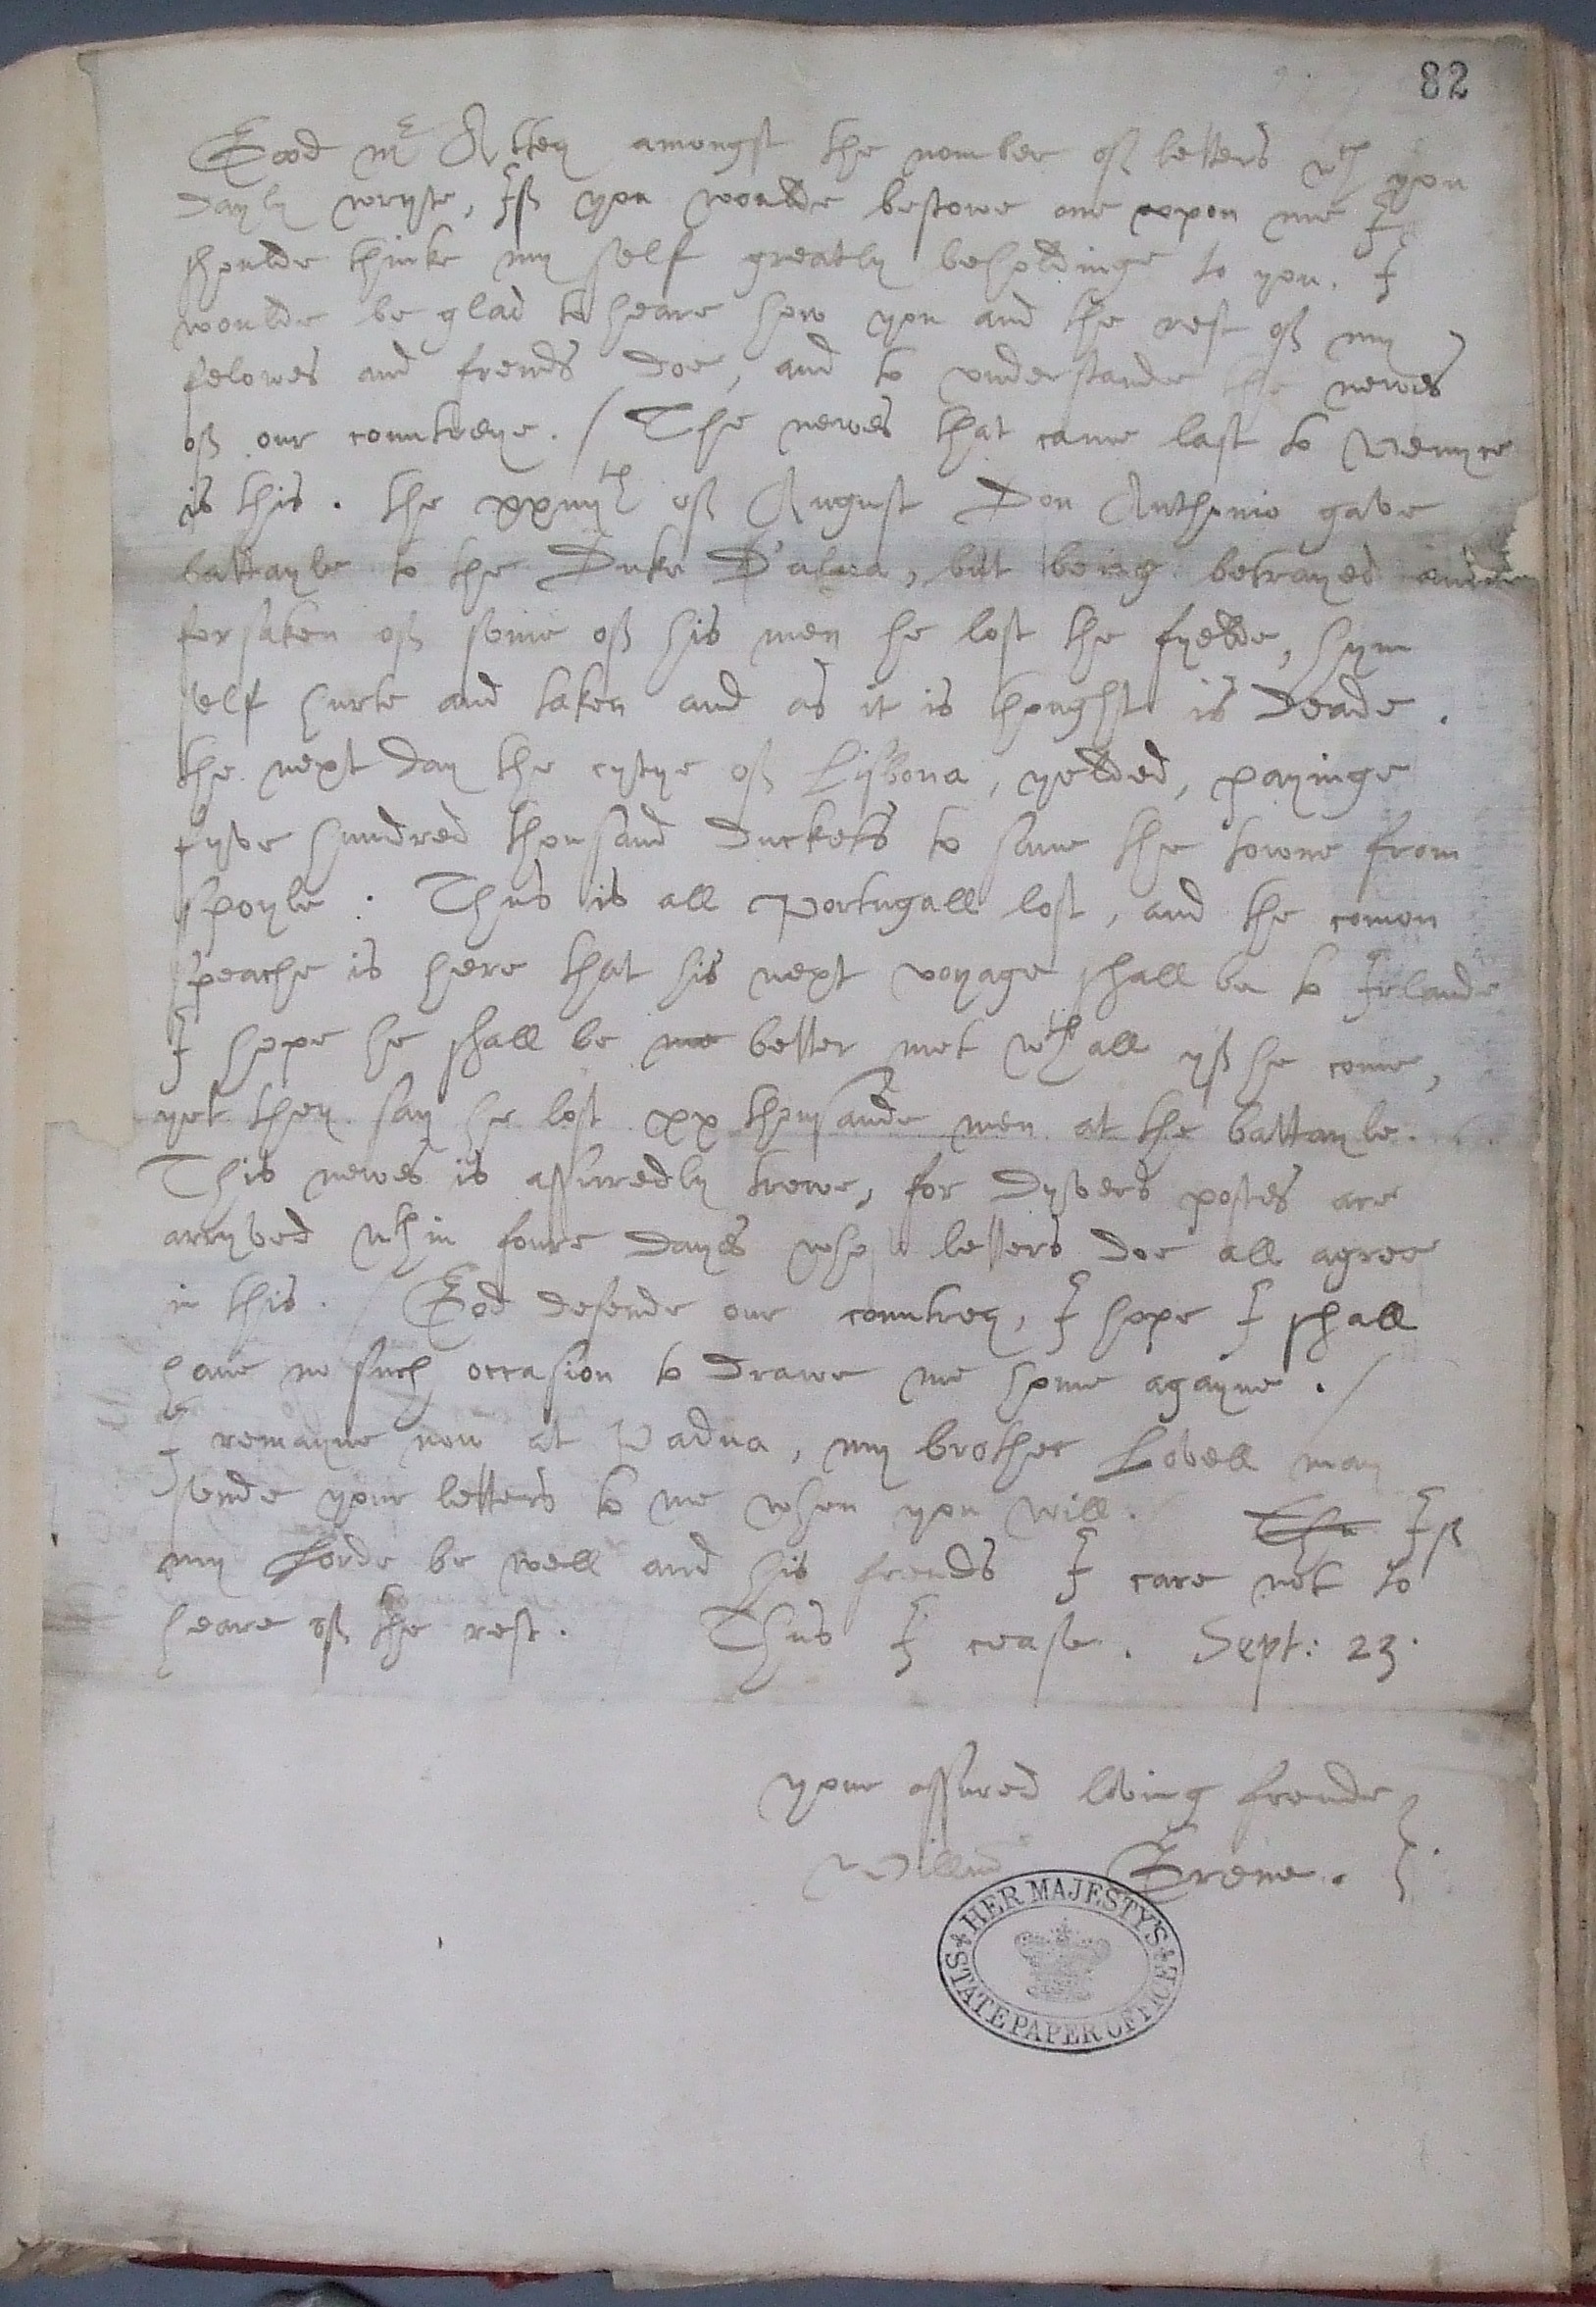 82
Good mr Atkey amongst the nomber off letters wch you
dayly wryte, Iff you woulde bestowe one uppon me I
shoulde thinke my self greatly beholdinge to you. I
woulde be glad to heare how you and the rest off my
felowes and frends doe, and to understande the newes
off our countreye. / The newes that came last to Venyce
is this. the xxiiijth off August Don Anthonio gave
battayle to the Duke D'alva, but being betrayed and
forsaken off some off his men he lost the fyelde, hym
self hurte and taken and as it is thought is deade.
the next day the cytye off Lisbona, yelded, payinge
fyve hundred thousand duckets to save the towne from
spoyle. Thus is all Portugall lost, and the comon
speache is here that his next voyage shall be to Irlande
I hope he shall be better met wthall yff he come,
yet they say he lost xx thousande men at the battayle.
This newes is assuredly trewe, for dyvers postes are
arryved wthin foure dayes whos letters doe all agree
in this. / God defende our countrey, I hope I shall
have no such occasion to drawe me home agayne. /
I remayne now at Padua, my brother Lovell may
sende your letters to me when you will. The Iff
my Lorde be well and his frends I care not to
heare off the rest. Thus I cease. Sept: 23.
your assured loving frende
Willm Grene.
HER MAJESTY'S
STATE PAPER OFFICE